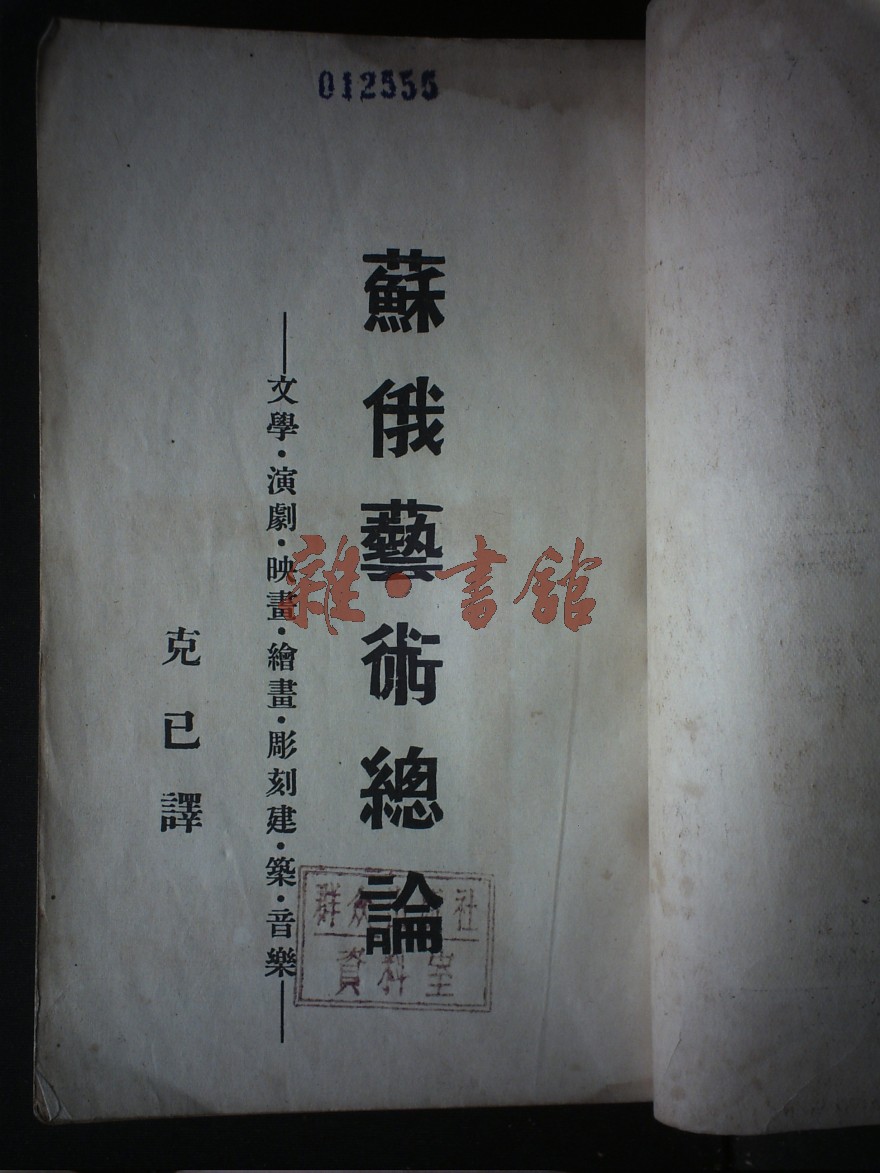 012555
蘇俄藝術總論
——文學·演劇·映畫·繪畫·彫刻建·築·音樂——
克已譯
雜·書館
群众 社
資料室